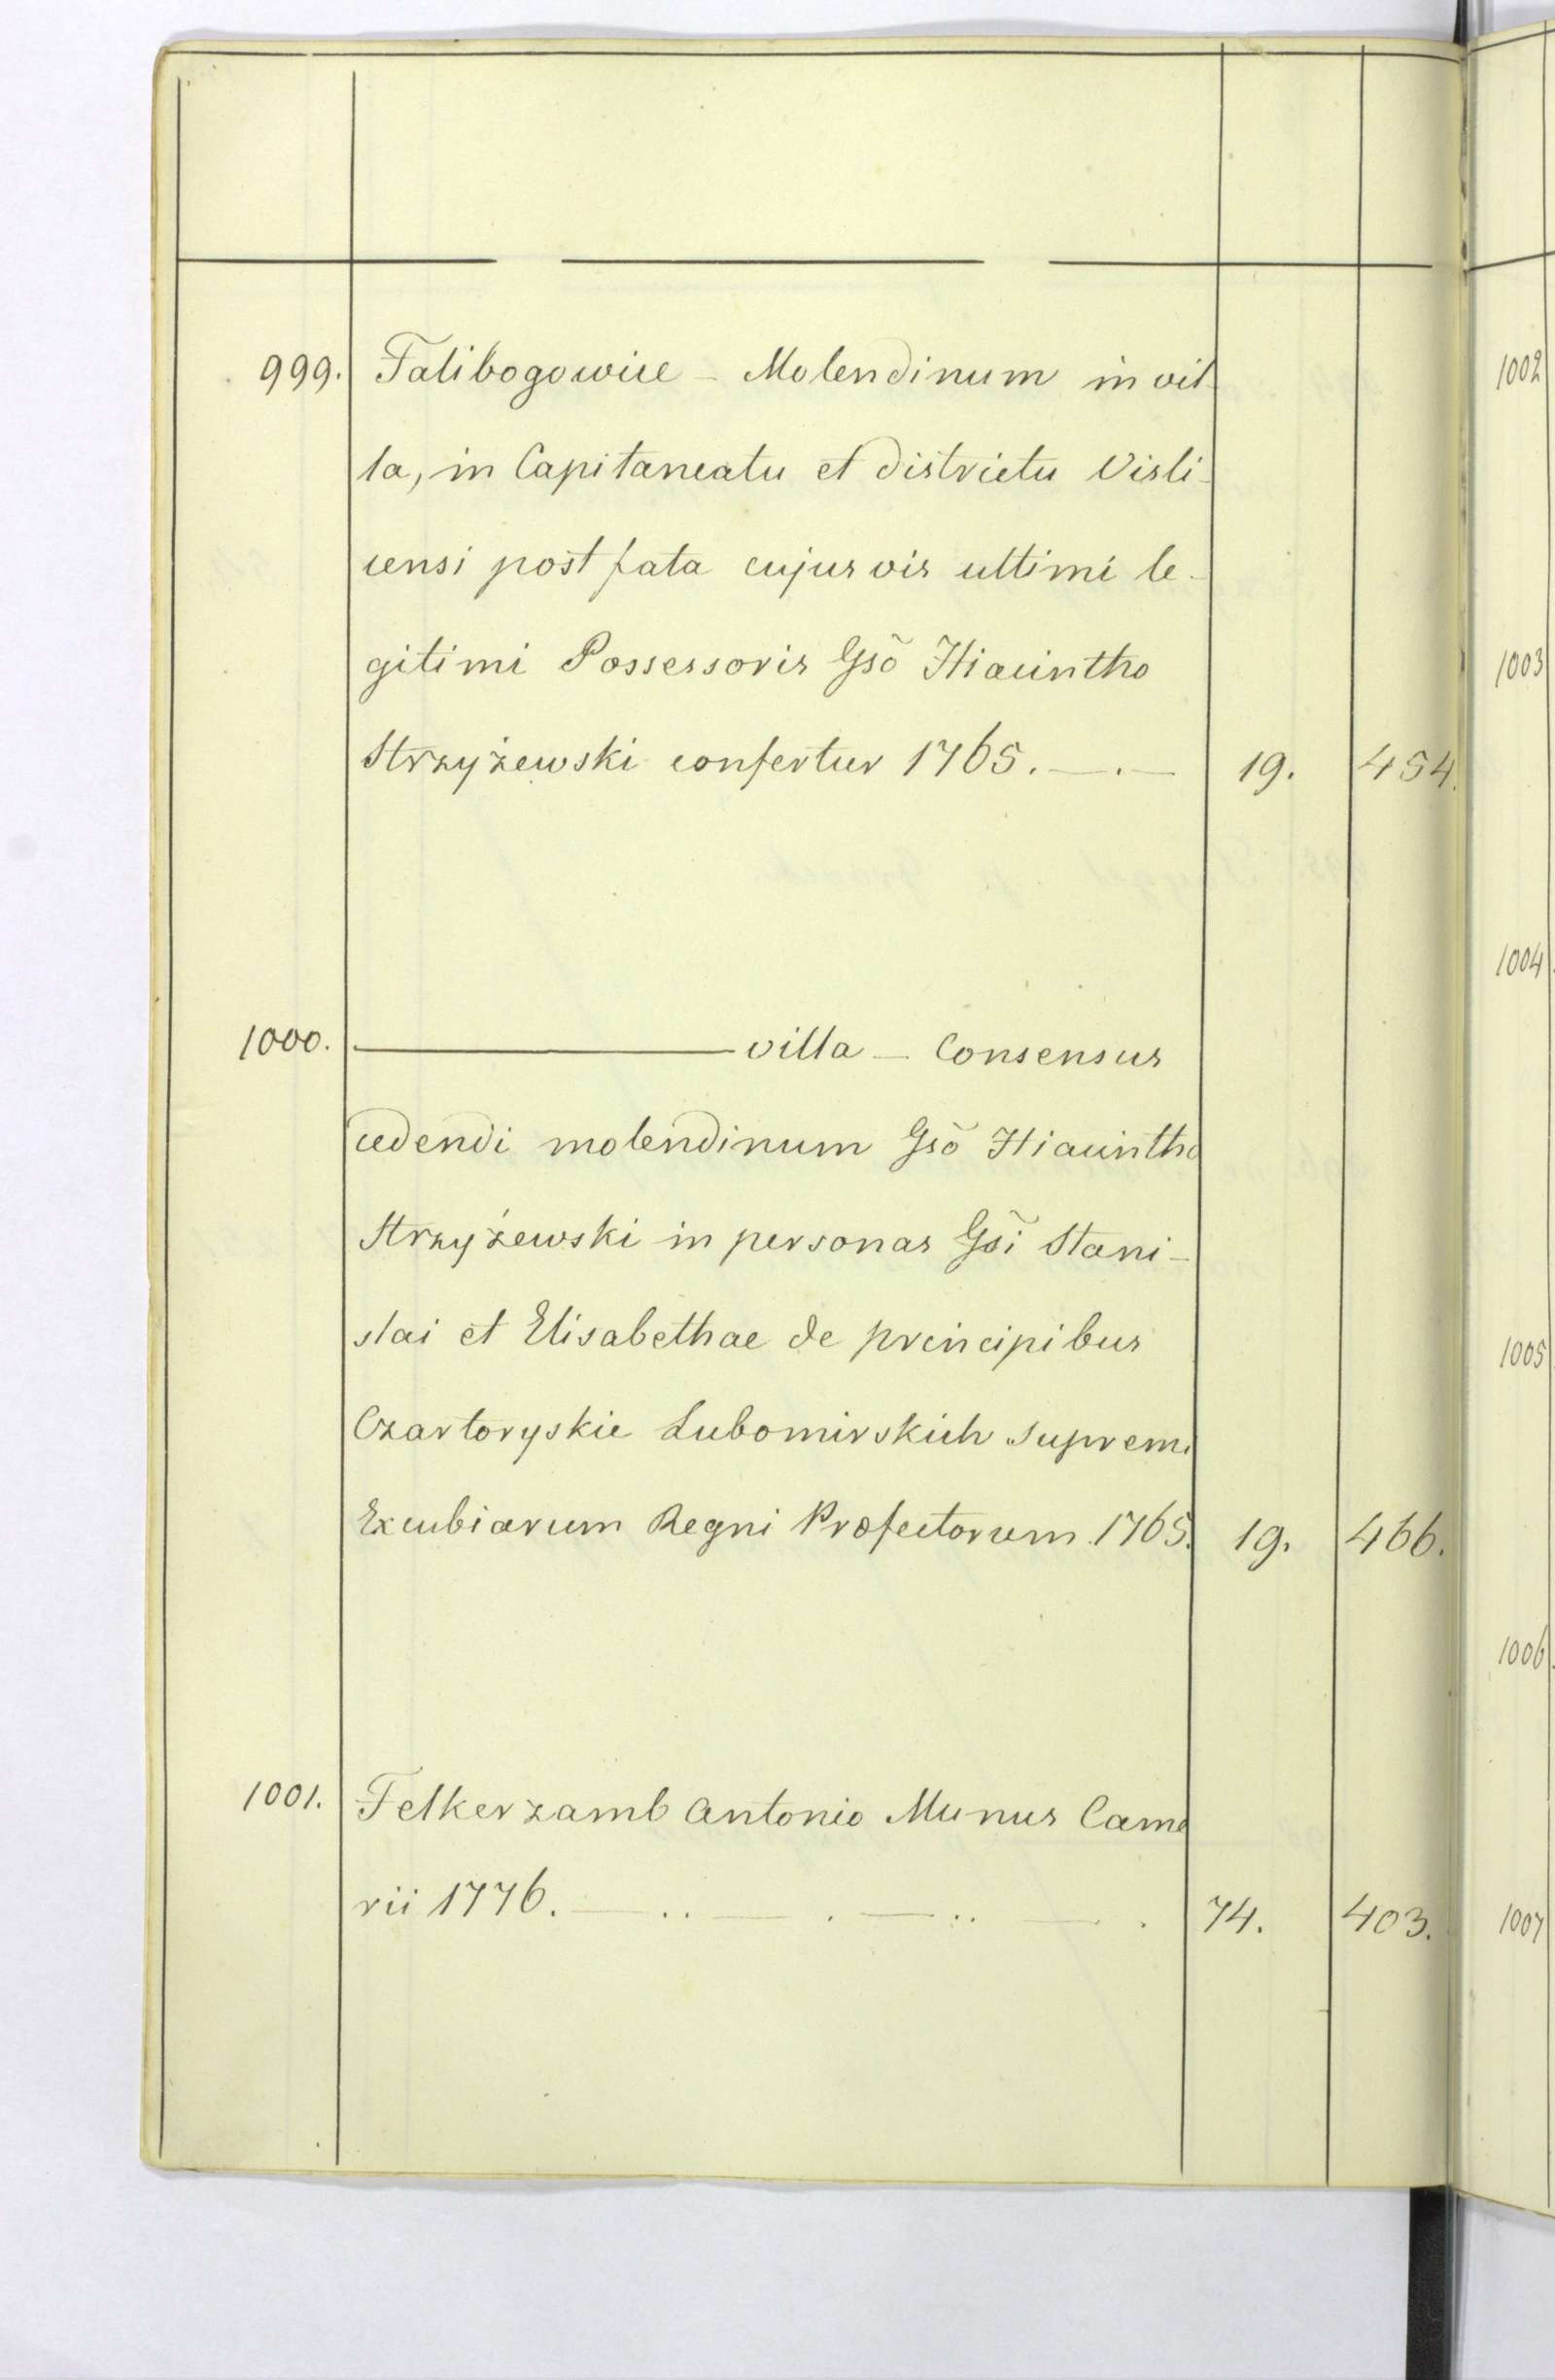 999. Falibogowice - Molendinum in vil-
la, in Capitaneatu et districtu Visli-
censi post fata cujusvis ultimi le-
gitimi Possessoris Gsõ Hiacintho
Strzyżewski confertur 1765. 19. 454.
1000. villa - Consensus
cedendi molendinum Gsõ Hiacintho
Strzyżewski in personas Gsĩ Stani-
slai et Elisabethae de principibus
Czartoryskie Lubomirskich supremi
Excubiarum Regni Præfectorum 1765. 19. 466.
1001. Felkerzamb Antonio Munus Came
rii 1776. 74. 403.
1002
1003
1004.
1005
1006.
1007